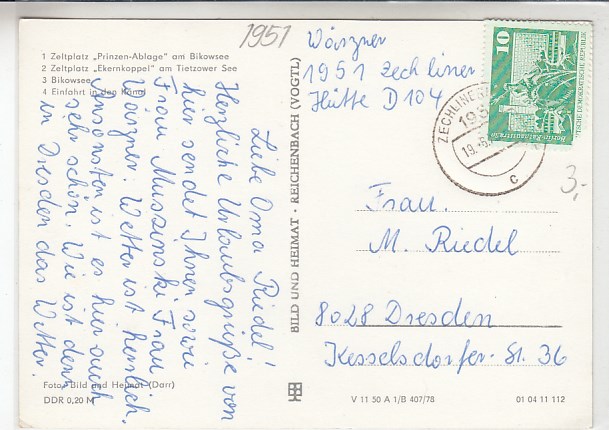 1951
1 Zeltplatz „Prinzen-Ablage" am Bikowsee
2 Zeltplatz „Ekernkoppel" am Tietzower See
3 Bikowsee
4 Einfahrt in den Kanal
Liebe Oma Riedel!
Herzliche Urlaubsgrüße von
hier sendet Ihnen sowie
Frau Muszinski Frau
Würzner. Wetter ist herrlich.
Ansonsten ist es hier auch
sehr schön. Wie ist denn
in Dresden das Wetter.
Foto: Bild und Heimat (Darr)
DDR 0,20 M
BILD UND HEIMAT · REICHENBACH (VOGTL)
Würzner
1951 Zechliner
Hütte D104
10
DEMOKRATISCHE REPUBLIK
ZECHLINER
195
19.
c
3,-
Frau
M. Riedel
8028 Dresden
Kesselsdorfer-St. 36
V 11 50 A 1/B 407/78
01 04 11 112